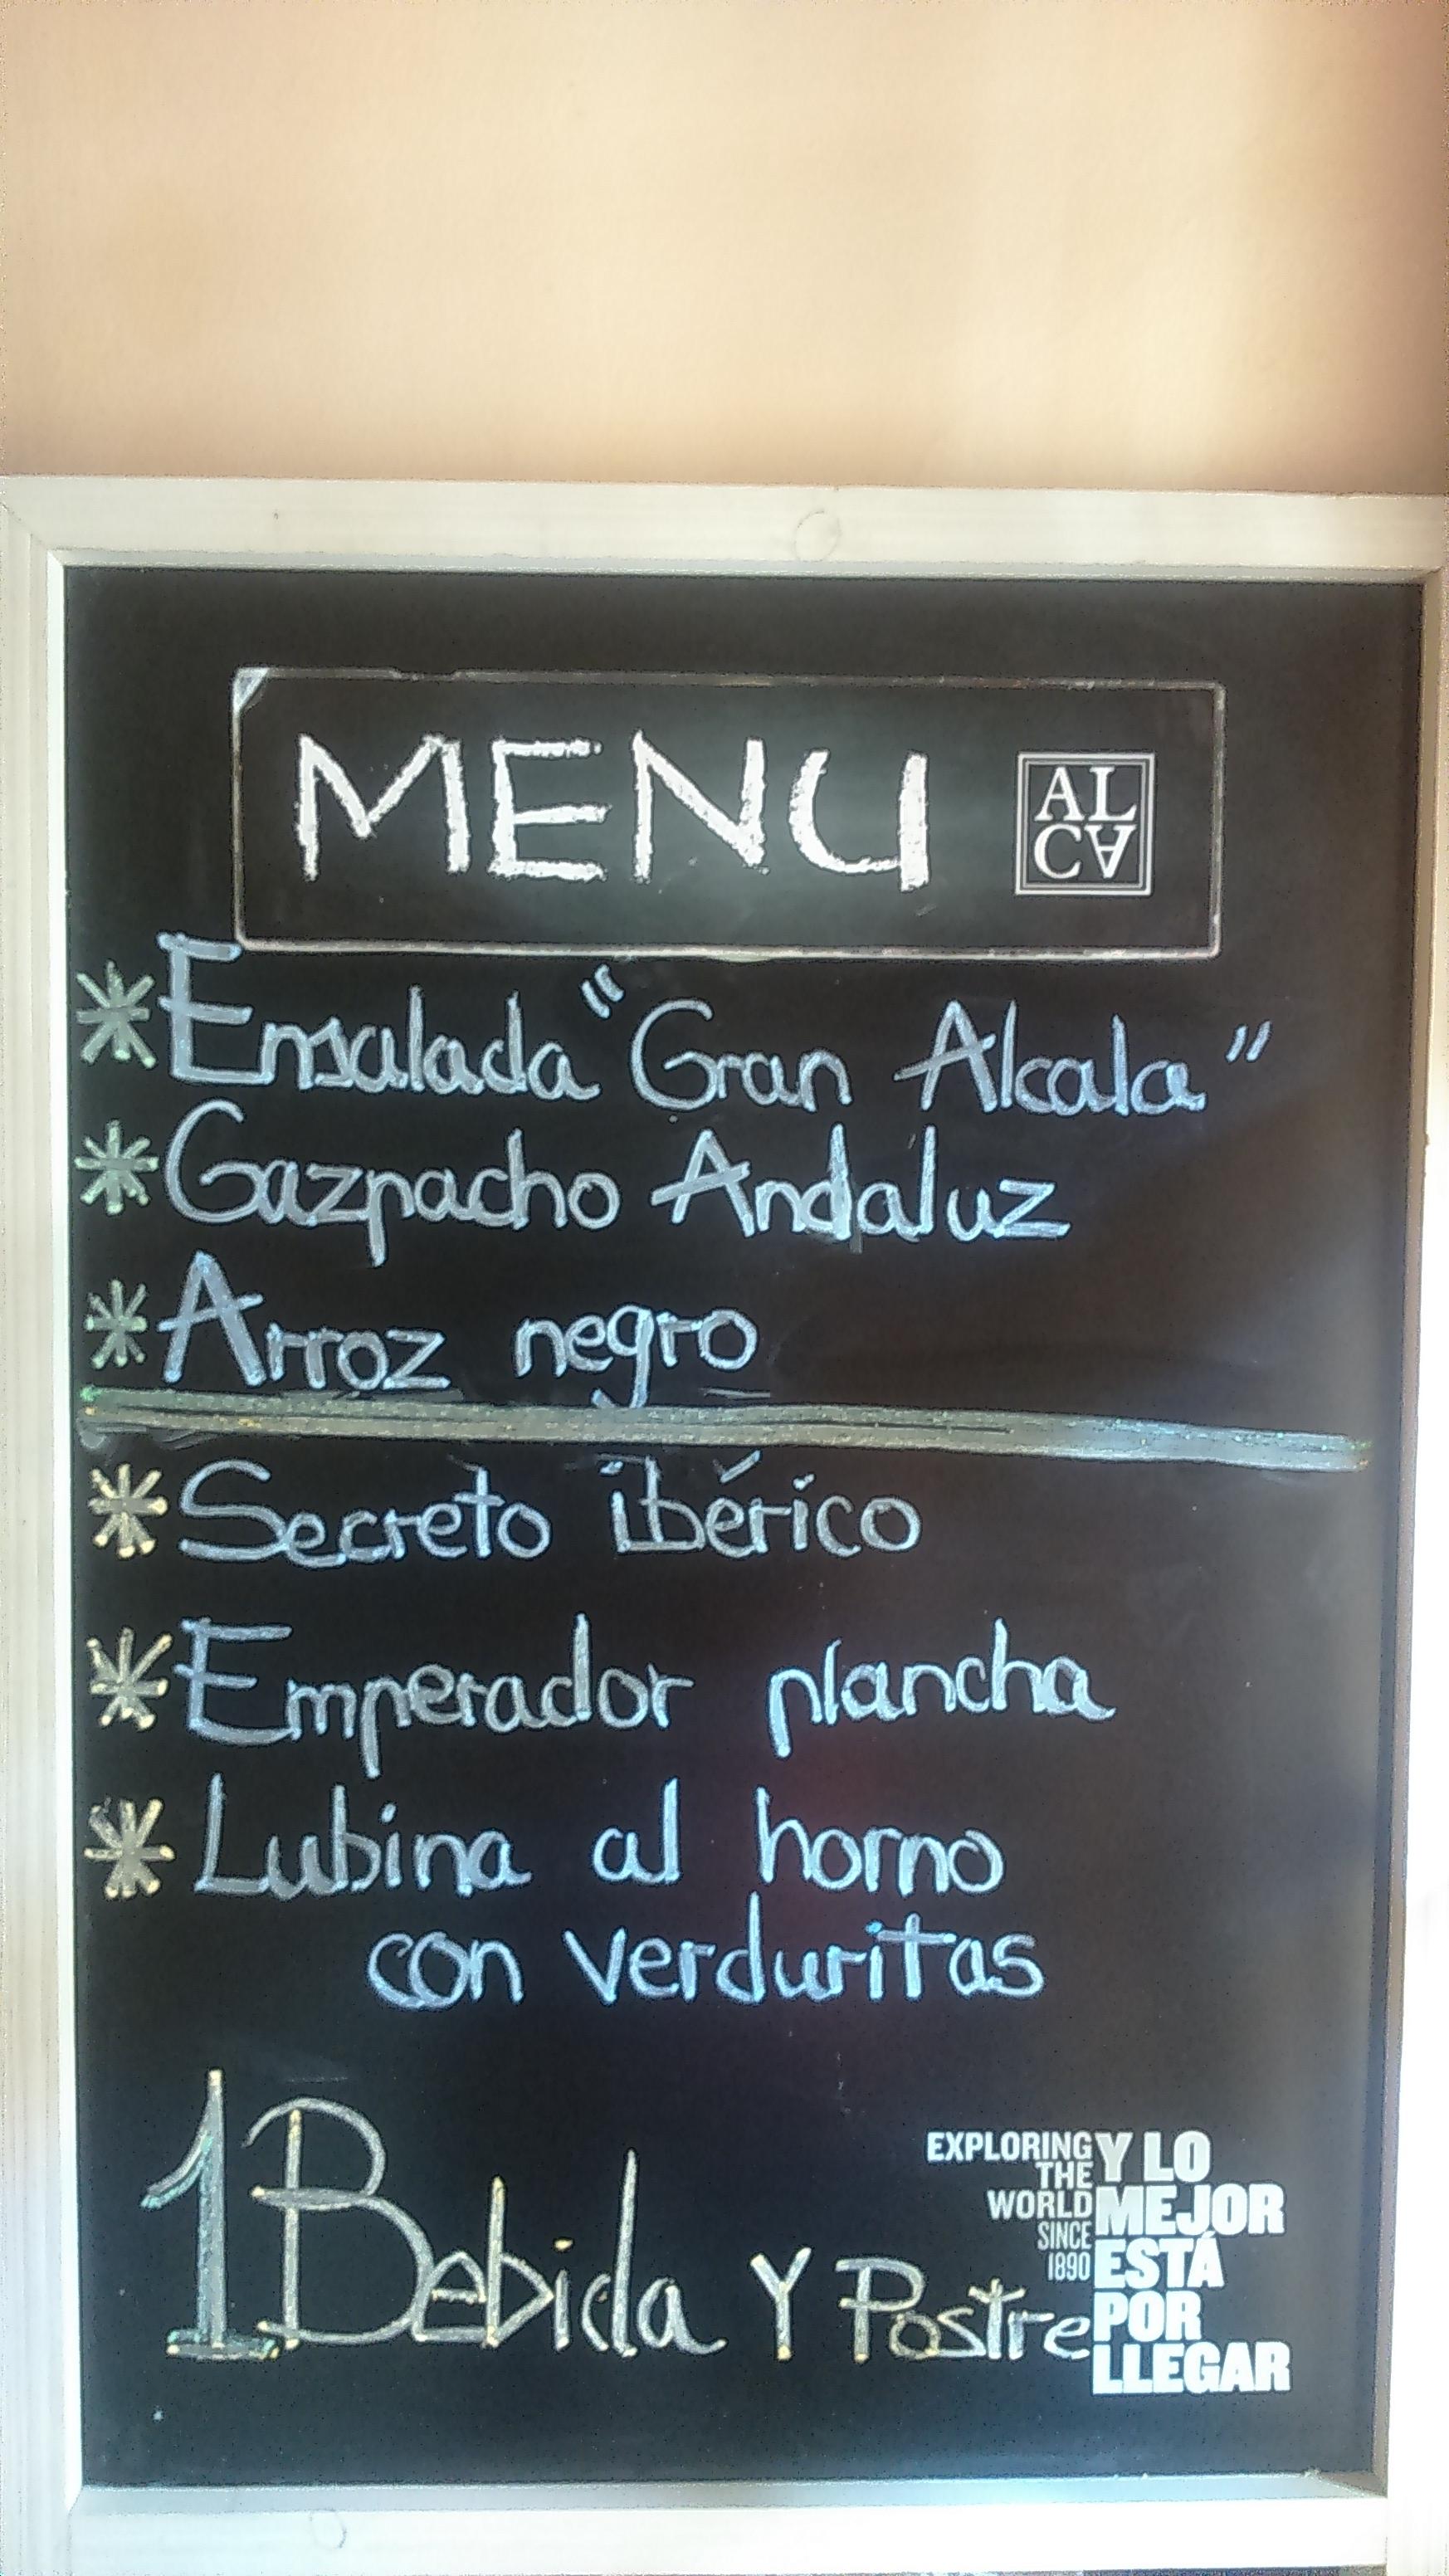 MENU
AL
CA
* Ensalada "Gran Alcala"
* Gazpacho Andaluz
* Arroz negro
* Secreto ibérico
* Emperador plancha
* Lubina al horno
con verduritas
1 Bebida Y Postre
EXPLORING
THE
WORLD
SINCE
1890
Y LO
MEJOR
ESTÁ
POR
LLEGAR